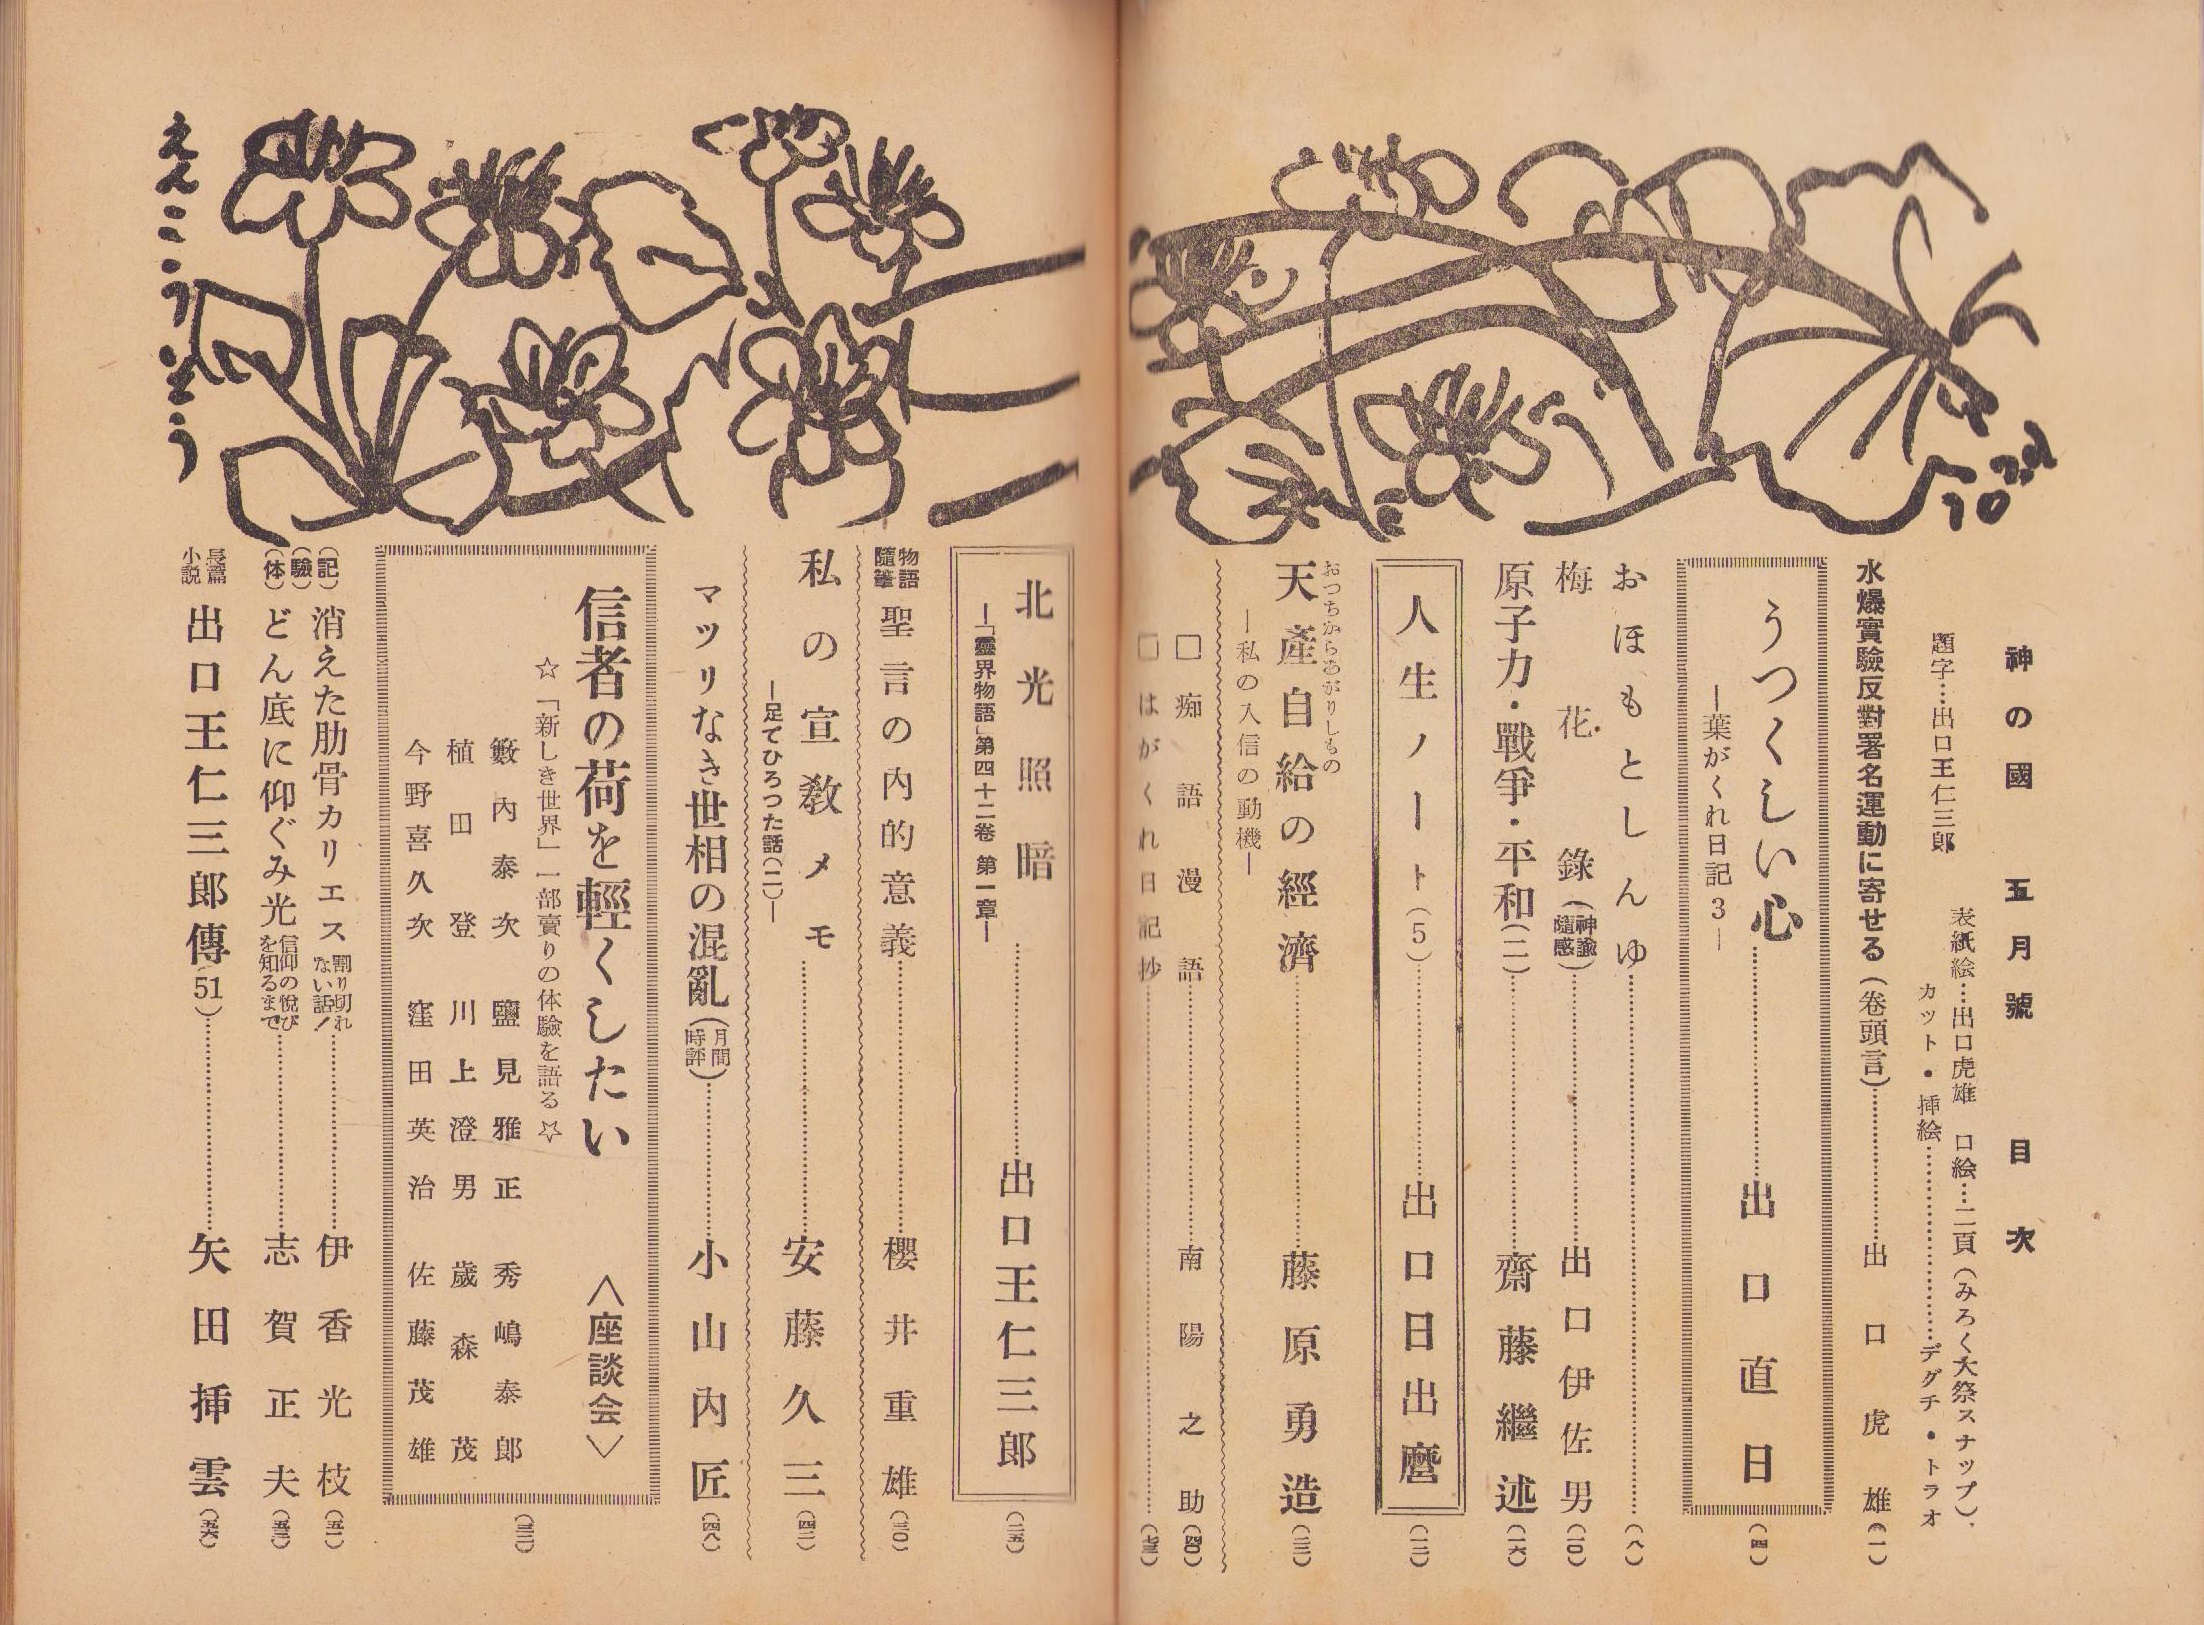 神の國　五月號　目次
題字…出口王仁三郎
表紙絵…出口虎雄　口絵…二頁（みろく大祭スナップ）
カット・挿絵……デグチ・トラオ
水爆實驗反對署名運動に寄せる（卷頭言）……出口虎雄（一）
うつくしい心……出口直日（四）
―葉がくれ日記3―
おほもとしんゆ……（八）
梅花錄（神諭隨感）……出口伊佐男（一〇）
原子力・戰爭・平和（二）……齋藤繼述（一六）
人生ノート（5）……出口日出麿（一二）
おつちからあがりしもの
天產自給の經濟……藤原勇造
―私の入信の動機―
□痴語漫語……南陽之助（四〇）
□はがくれ日記抄……
北光照暗……出口王仁三郎（二五）
―「靈界物語」第四十二卷　第一章―
物語隨筆　聖言の內的意義……櫻井重雄（三〇）
私の宣教メモ……安藤久三（四二）
―足でひろつた話（二）―
マツリなき世相の混亂（月間時評）……小山內匠（四八）
信者の荷を輕くしたい　〈座談会〉
☆「新しき世界」一部賣りの体驗を語る☆
籔內泰次　鹽見雅正　秀嶋泰郎
植田登　川上澄男　歲森茂
今野喜久次　窪田英治　佐藤茂雄
（三二）
（体）（驗）（記）
消えた肋骨カリエス　割り切れない話！……伊香光枝（五一）
どん底に仰ぐみ光　信仰の悅びを知るまで……志賀正夫（五三）
長篇小説　出口王仁三郎傳（51）……矢田挿雲（五六）